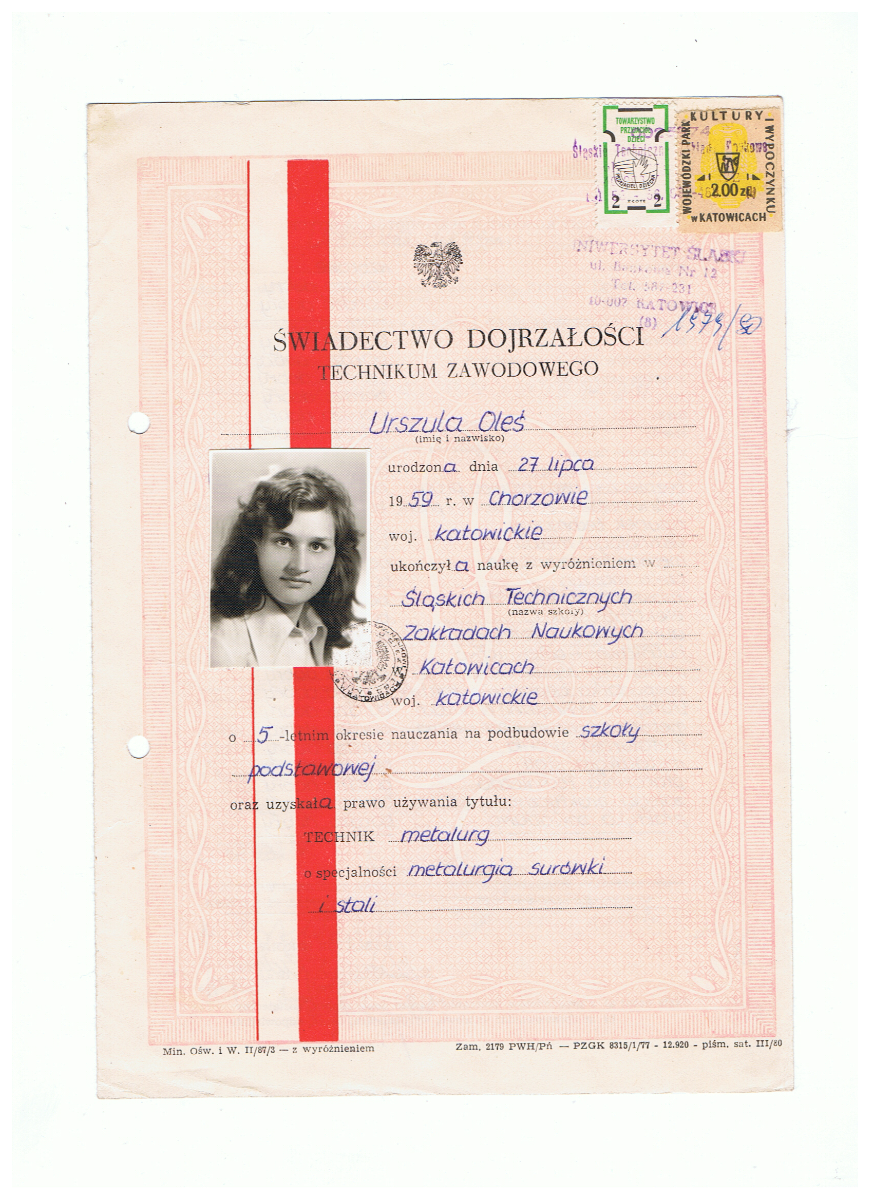 TOWARZYSTWO
PRZYJACIÓŁ
DZIECI
2 ZŁOTE 2
KULTURY
I WYPOCZYNKU
WOJEWÓDZKI PARK
2.00 zł
w KATOWICACH
UNIWERSYTET ŚLĄSKI
ul. Bankowa Nr 12
Tel. 587-231
40-007 KATOWICE
(8)
1979/80
ŚWIADECTWO DOJRZAŁOŚCI
TECHNIKUM ZAWODOWEGO
Urszula Oleś
(imię i nazwisko)
urodzona dnia 27 lipca
1959 r. w Chorzowie
woj. katowickie
ukończyła naukę z wyróżnieniem w
Śląskich Technicznych
(nazwa szkoły)
Zakładach Naukowych
Katowicach
woj. katowickie
o 5-letnim okresie nauczania na podbudowie szkoły
podstawowej
oraz uzyskała prawo używania tytułu:
TECHNIK metalurg
o specjalności metalurgia surówki
i stali
Min. Ośw. i W. II/87/3 — z wyróżnieniem
Zam. 2179 PWH/Pń — PZGK 8315/1/77 - 12.920 - piśm. sat. III/80